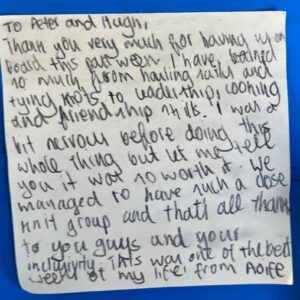 TO Peter and Hugh,
Thank you very much for having us on
board this past week. I have learned
so much from hauling sails and
tying knots to leadership, cooking
and friendship skills. I was a
bit nervous before doing this
whole thing but let me tell
you it was so worth it. We
managed to have such a close
knit group and thats all thanks
to you guys and your
inclusivity. This was one of the best
weeks of my life! from Aoife